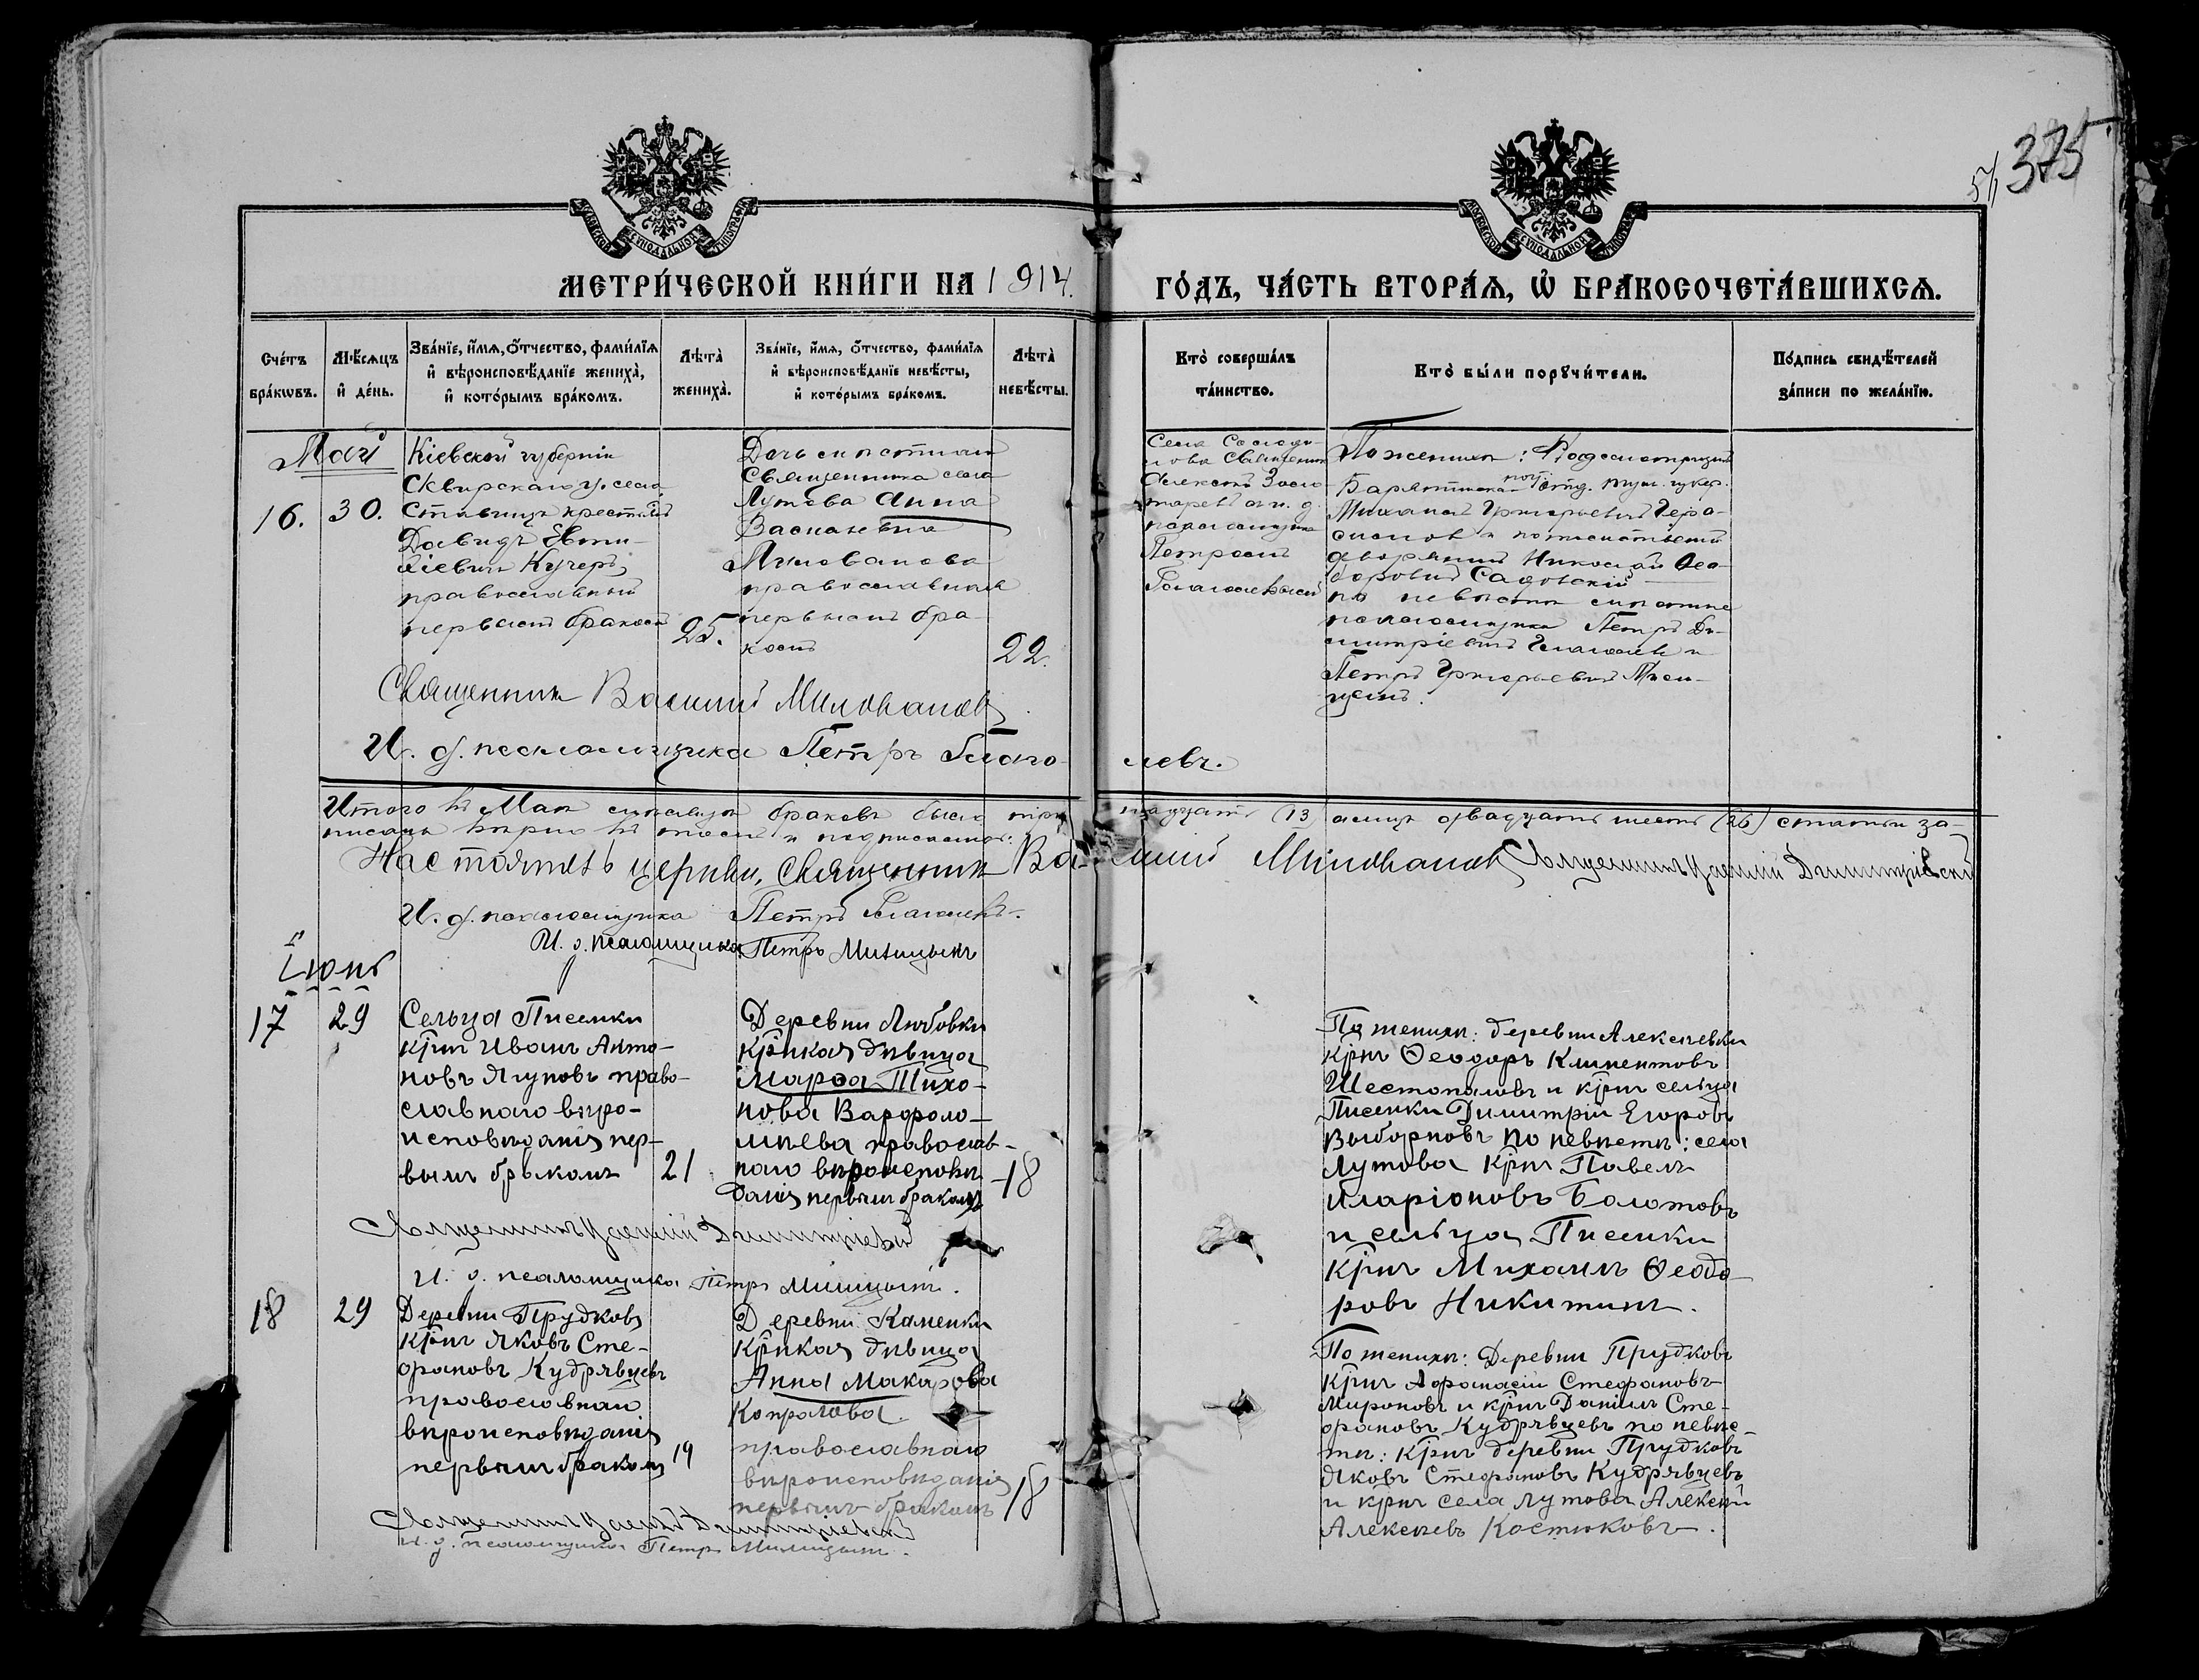 375
МЕТРИ́ЧЕСКОЙ КНИ́ГИ НА 1914.
ГО́ДЪ, ЧА́СТЬ ВТОРА́Я, Ѡ҆ БРАКОСОЧЕТА́ВШИХСЯ.
Сче́тъ бра́кѡвъ.
Мѣ́сяцъ и҆ де́нь.
Зва́нїе, и҆́мя, ѻ҆́тчество, фами́лїя
и҆ вѣроисповѣ́данїе жениха̀,
и҆ кото́рымъ бра́комъ.
Лѣта̀ жениха̀.
Зва́нїе, и҆́мя, ѻ҆́тчество, фами́лїя
и҆ вѣроисповѣ́данїе невѣ́сты,
и҆ кото́рымъ бра́комъ.
Лѣта̀ невѣ́сты.
Кто̀ соверша́лъ та́инство.
Кто̀ бы́ли порꙋчи́тели.
По́дпись свидѣ́телей за́писи по жела́нїю.
Май
16.
30.
Кіевской губерніи
Сквирскаго у. села
Ставищъ
Давидъ Евти-
Кучеръ,
православный
первымъ бракомъ
25.
Дочь
Священника села
Лутова Анна
Васильевна
Милованова
православная
первымъ бра-
комъ
22.
Села
Священникъ
Алексѣй
и. д.
псаломщика
Петромъ
По женихѣ:
Михаилъ Григорьевичъ Гера-
симов и
дворянинъ Николай Ѳео-
доровичъ Садовскій
по невѣстѣ
псаломщика Петръ Ди-
митріевичъ и
Петръ Григорьевичъ Миши-
цынъ.
Священникъ Василій Миловановъ.
И. д. псаломщика Петръ Глаго-
левъ.
Итого въ Маѣ мѣсяцѣ браковъ было три-
надцать (13) а лицъ двадцать шесть (26) статьи за-
писаны вѣрно въ томъ и подписались:
Настоятель церкви, Священникъ Ва-
силій Миловановъ Священникъ Димитріевскій
И. д. псаломщика Петръ Глаголевъ.
И. д. псаломщика Петръ Мишицынъ
Іюнь
17
29
Сельца Писемки
кр҃нъ Иванъ Анто-
новъ Ягуновъ право-
славнаго вѣро-
исповѣданія пер-
вымъ бракомъ
21
Деревни Любовки
кр҃нкая дѣвица
Марѳа Тихо-
нова Варфоло-
мѣева православ-
наго вѣроисповѣ-
данія первымъ бракомъ
18
По женихѣ: деревни Алексѣевки
кр҃нъ Ѳеодоръ Климентовъ
Шестопаловъ и кр҃нъ сельца
Писемки Димитрій Егоровъ
Выборновъ по невѣстѣ: села
Лутова кр҃нъ Павелъ
Иларіоновъ Болотовъ
и сельца Писемки
кр҃нъ Михаилъ Ѳеодо-
ровъ Никитинъ.
Священникъ Димитріевскій
И. д. псаломщика Петръ Мишицынъ.
18
29
Деревни Прудковъ
кр҃нъ Яковъ Сте-
фановъ Кудрявцевъ
православнаго
вѣроисповѣданія
первымъ бракомъ
19
Деревни Каменки
кр҃нкая дѣвица
Анна Макарова
Копылова
православнаго
вѣроисповѣданія
первымъ бракомъ
18
По женихѣ: Деревни Прудковъ
кр҃нъ Афанасій Стефановъ
Мироновъ и кр҃нъ Даніилъ Сте-
фановъ Кудрявцевъ по невѣс-
тѣ: кр҃нъ деревни Прудковъ
Яковъ Стефановъ Кудрявцевъ
и кр҃нъ села Лутова Алексѣй
Алексѣевъ Костюковъ.
Священникъ Димитріевскій
И. д. псаломщика Петръ Мишицынъ.